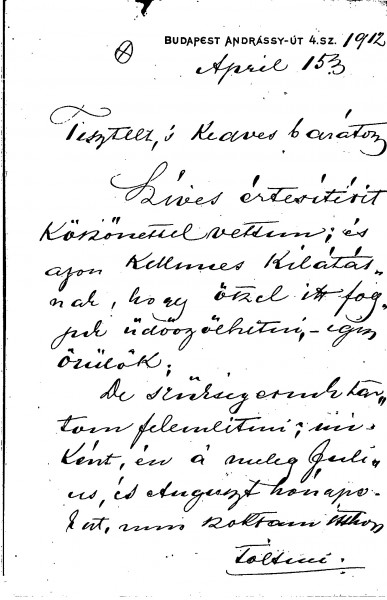 BUDAPEST ANDRÁSSY-ÚT 4.SZ. 1912
April 15
Tisztelt, s Kedves barátom
Szíves értesítésit
Köszönettel vettem; és
azon Kellemes Kilátás„
nak, hogy őket itt fog„
juk üdvözölhetni, – igen
örülök;
De szükségesnek tar„
tom felemlíteni; mi„
Ként, én a meleg Juli„
us, és Auguszt hónapo„
kat, nem szoktam itthon
tölteni.